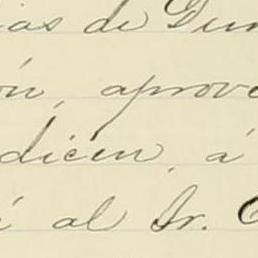 ias de Dun
ón, aprove
dicen, á
é al Sr. C